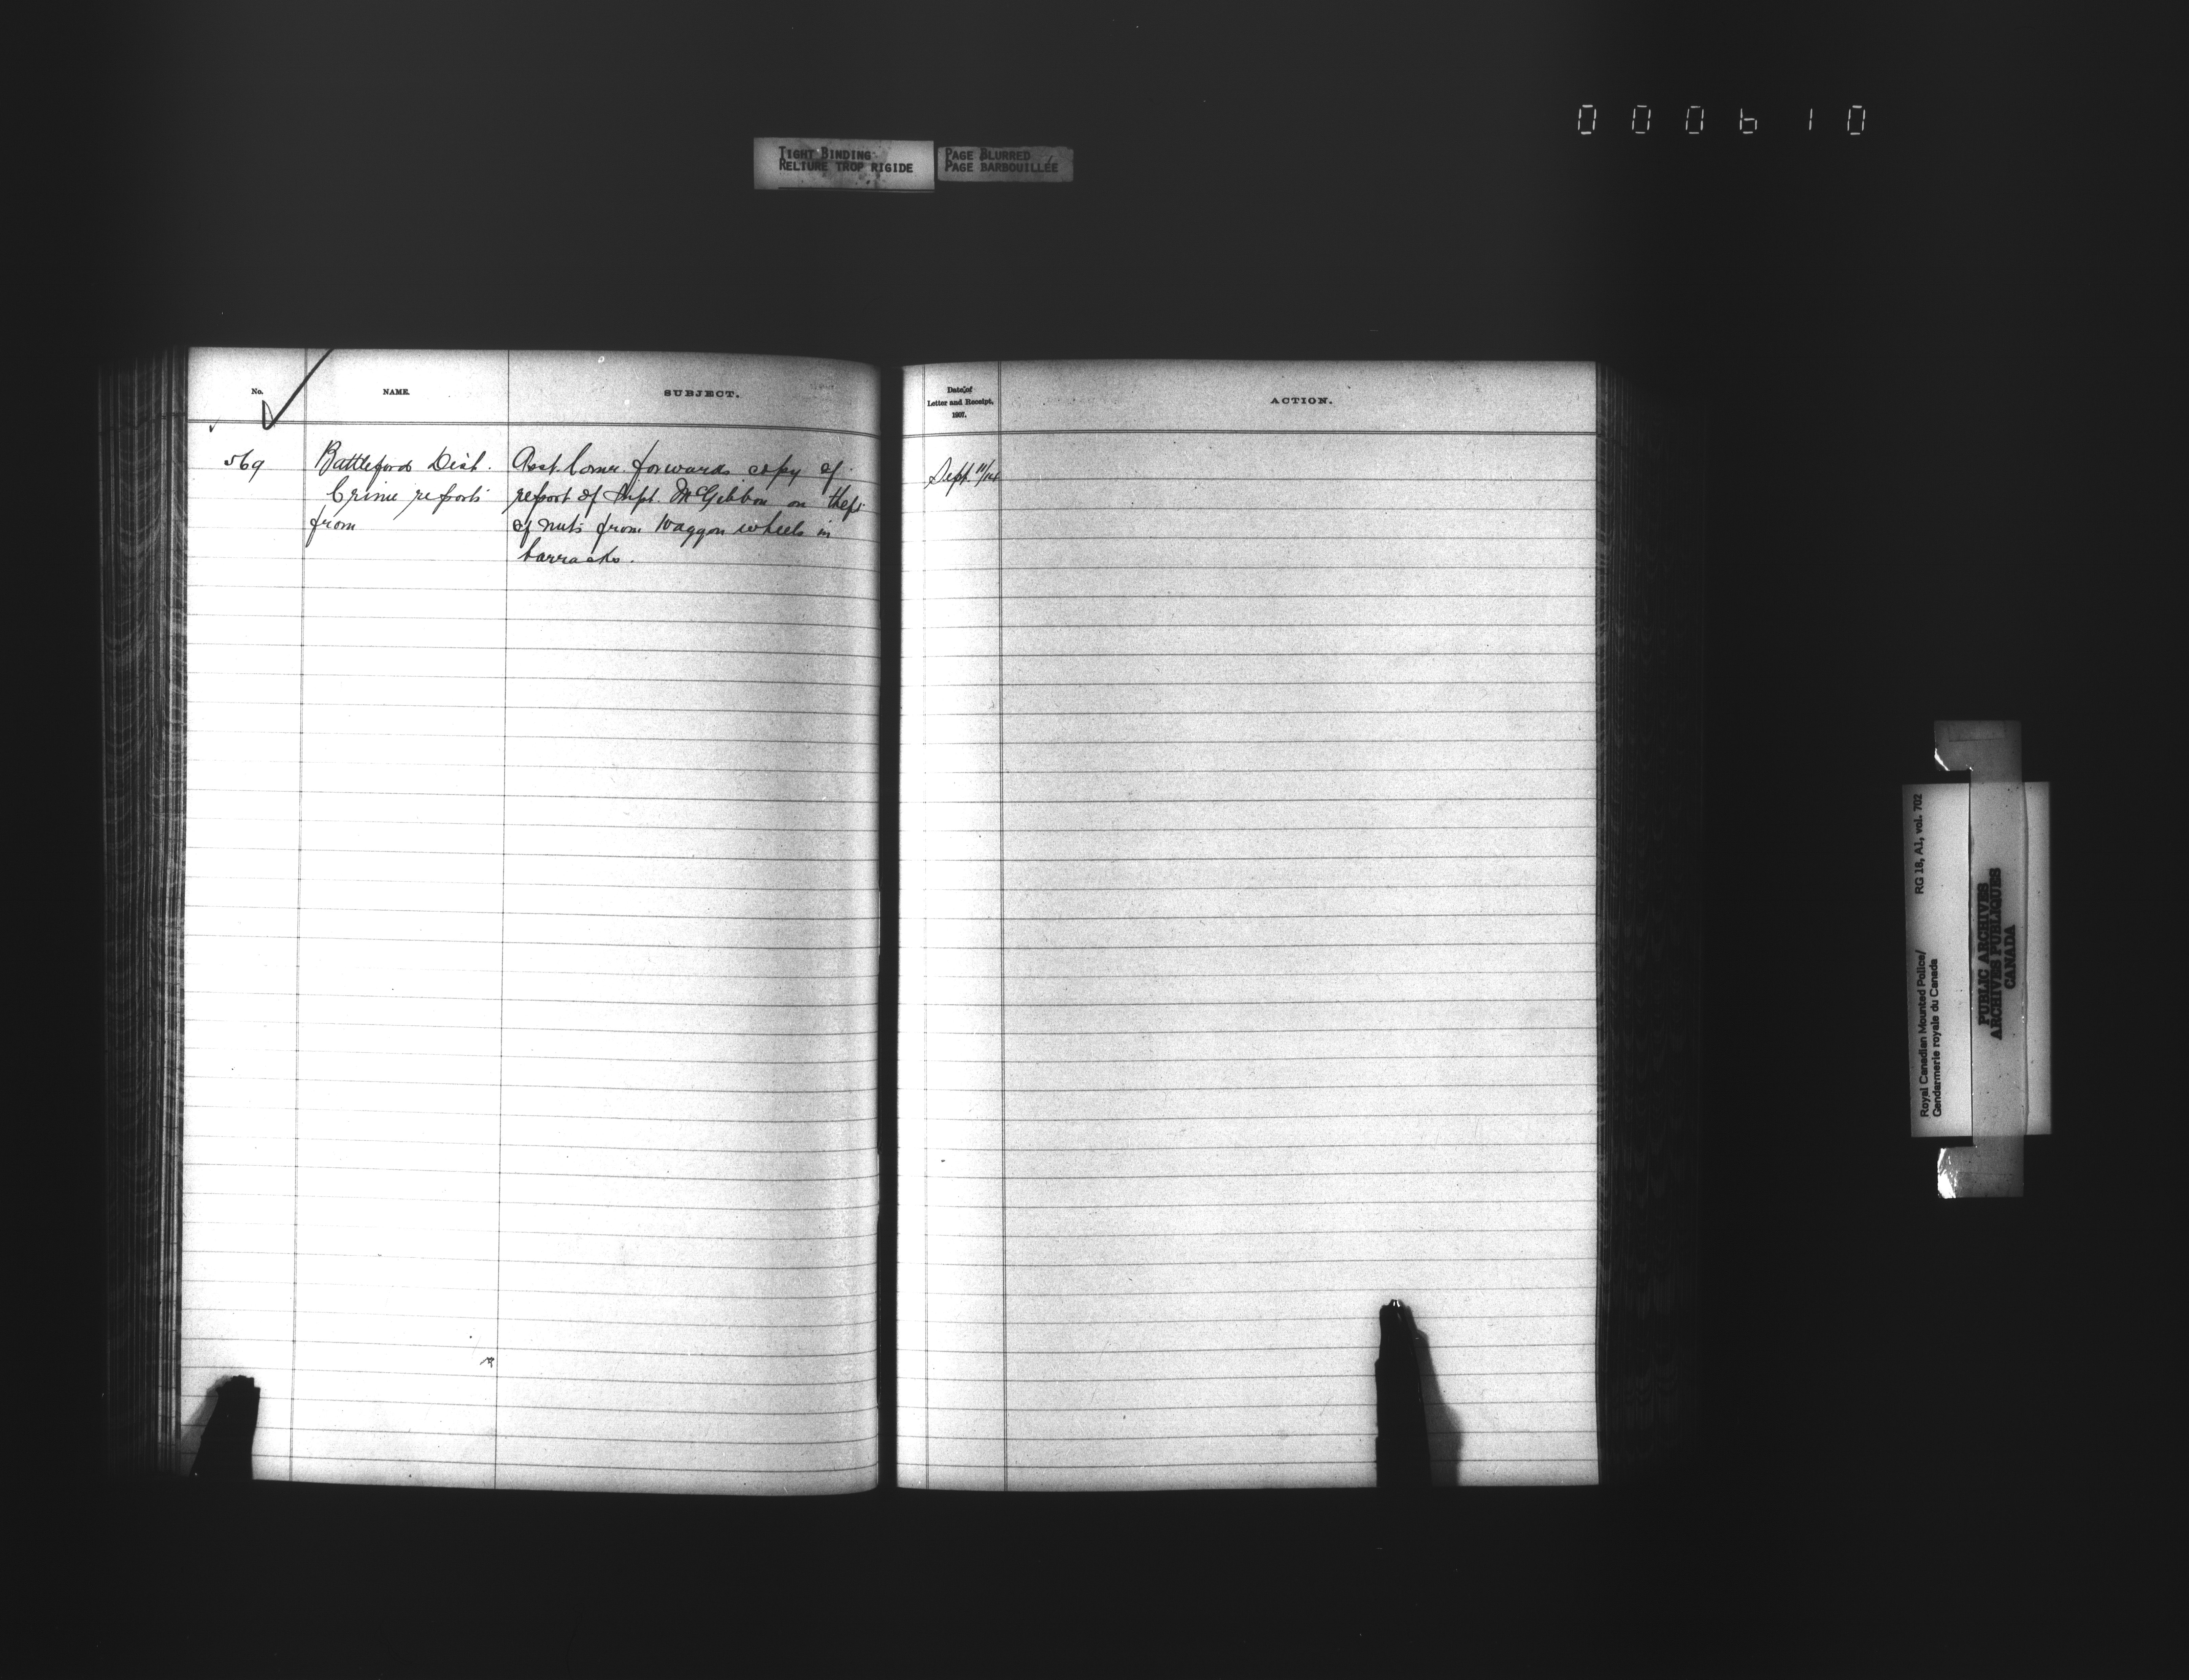 000610
TIGHT BINDING
RELIURE TROP RIGIDE
PAGE BLURRED
PAGE BARBOUILLÉE
No.
NAME.
SUBJECT.
569
Battleford Dist.
Crime reports
from
Asst. Comr. forwards copy of
report of Supt. McGibbon on theft
of nuts from waggon wheels in
barracks.
Date of
Letter and Receipt,
1907.
ACTION.
Sept. 11/14
Royal Canadian Mounted Police/
Gendarmerie royale du Canada
RG 18, A1, vol. 702
PUBLIC ARCHIVES
ARCHIVES PUBLIQUES
CANADA